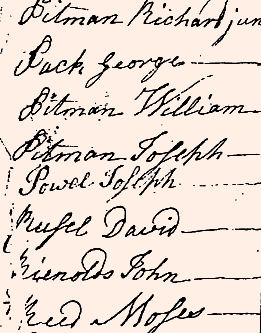 Pitman Richard jun
Pack George
Pitman William
Pitman Joseph
Powel Joseph
Rusel David
Rienolds John
Reed Moses